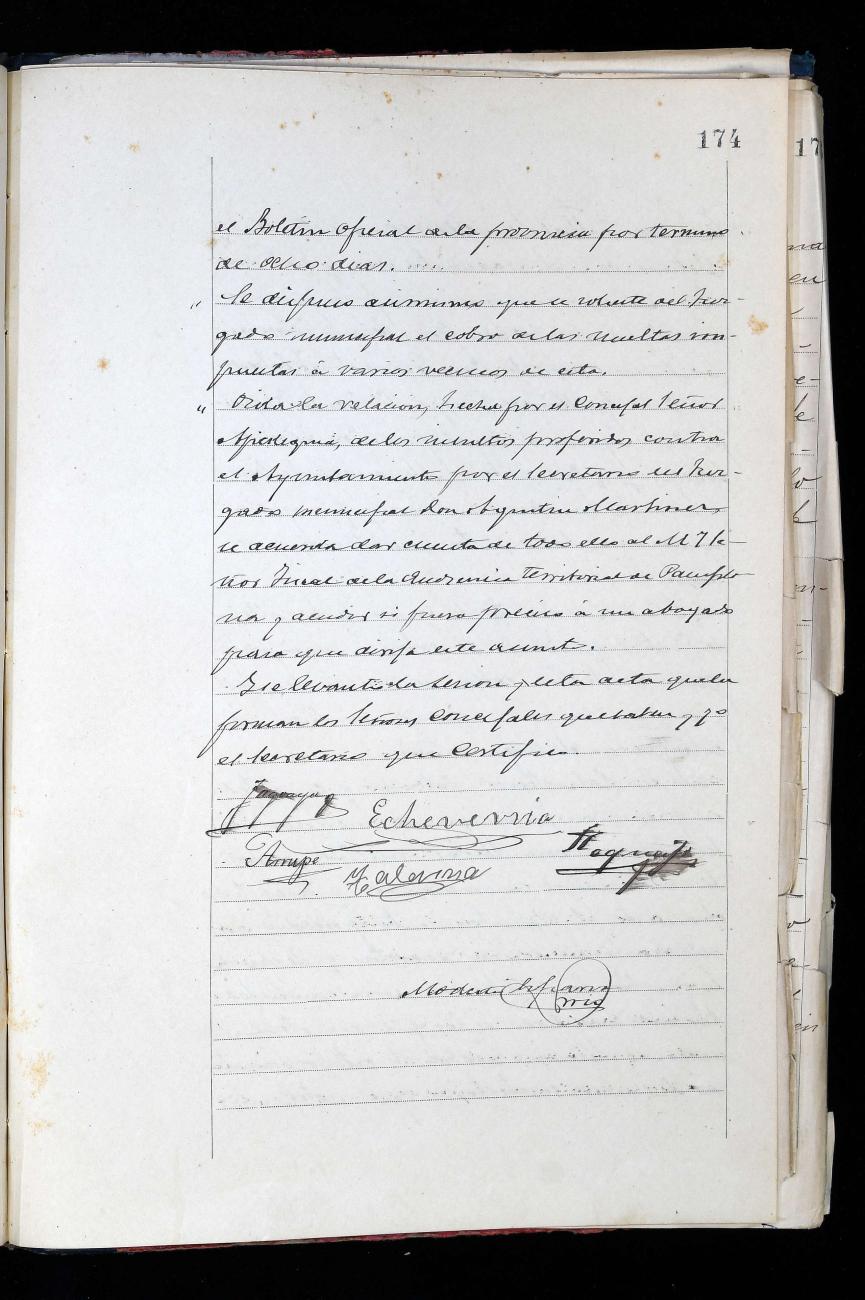 174
el Boletin Oficial de la provincia por termino
de ocho dias.
" Se dispuso asimismo que se solicite del Juz-
gado municipal el cobro de las multas im-
puestas á varios vecinos de esta.
" Oida la relacion, hecha por el Concejal Señor
de los insultos proferidos contra
el Ayuntamiento por el Secretario del Juz-
gado municipal don Agustin Martinez
se acuerda dar cuenta de todo ello al M. I Se-
ñor Fiscal de la Audiencia Territorial de Pamplo-
na y acudir si fuera preciso á un abogado
para que dirija este asunto.
Y se levantó la sesion y esta acta que la
forman los Señores Concejales que saben y yo
el Secretario que Certifico.
Echeverria
Arrupe
Talavera
Modesto